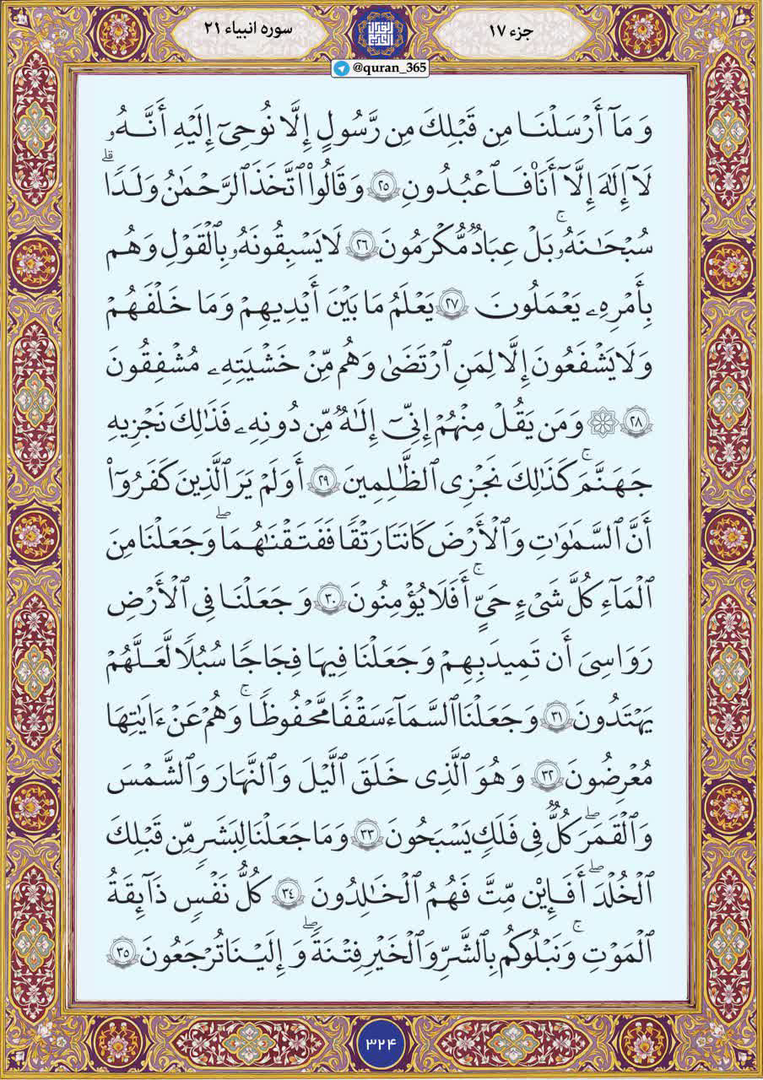 جزء ۱۷
سوره انبیاء ۲۱
@quran_365
وَ مَآ أَرْسَلْنَا مِن قَبْلِكَ مِن رَّسُولٍ إِلَّا نُوحِىٓ إِلَيْهِ أَنَّهُۥ
لَآ إِلَٰهَ إِلَّآ أَنَا۠ فَٱعْبُدُونِ ۲۵ وَ قَالُوا۟ ٱتَّخَذَ ٱلرَّحْمَٰنُ وَلَدًا ۗ
سُبْحَٰنَهُۥ ۚ بَلْ عِبَادٌ مُّكْرَمُونَ ۲۶ لَا يَسْبِقُونَهُۥ بِٱلْقَوْلِ وَ هُم
بِأَمْرِهِۦ يَعْمَلُونَ ۲۷ يَعْلَمُ مَا بَيْنَ أَيْدِيهِمْ وَ مَا خَلْفَهُمْ
وَ لَا يَشْفَعُونَ إِلَّا لِمَنِ ٱرْتَضَىٰ وَ هُم مِّنْ خَشْيَتِهِۦ مُشْفِقُونَ
۲۸ ۞ وَ مَن يَقُلْ مِنْهُمْ إِنِّىٓ إِلَٰهٌ مِّن دُونِهِۦ فَذَٰلِكَ نَجْزِيهِ
جَهَنَّمَ ۚ كَذَٰلِكَ نَجْزِى ٱلظَّٰلِمِينَ ۲۹ أَوَ لَمْ يَرَ ٱلَّذِينَ كَفَرُوٓا۟
أَنَّ ٱلسَّمَٰوَٰتِ وَ ٱلْأَرْضَ كَانَتَا رَتْقًا فَفَتَقْنَٰهُمَا ۖ وَ جَعَلْنَا مِنَ
ٱلْمَآءِ كُلَّ شَىْءٍ حَىٍّ ۚ أَفَلَا يُؤْمِنُونَ ۳۰ وَ جَعَلْنَا فِى ٱلْأَرْضِ
رَوَٰسِىَ أَن تَمِيدَ بِهِمْ وَ جَعَلْنَا فِيهَا فِجَاجًا سُبُلًا لَّعَلَّهُمْ
يَهْتَدُونَ ۳۱ وَ جَعَلْنَا ٱلسَّمَآءَ سَقْفًا مَّحْفُوظًا ۚ وَ هُمْ عَنْ ءَايَٰتِهَا
مُعْرِضُونَ ۳۲ وَ هُوَ ٱلَّذِى خَلَقَ ٱلَّيْلَ وَ ٱلنَّهَارَ وَ ٱلشَّمْسَ
وَ ٱلْقَمَرَ ۖ كُلٌّ فِى فَلَكٍ يَسْبَحُونَ ۳۳ وَ مَا جَعَلْنَا لِبَشَرٍ مِّن قَبْلِكَ
ٱلْخُلْدَ ۖ أَفَإِي۟ن مِّتَّ فَهُمُ ٱلْخَٰلِدُونَ ۳۴ كُلُّ نَفْسٍ ذَآئِقَةُ
ٱلْمَوْتِ ۗ وَ نَبْلُوكُم بِٱلشَّرِّ وَ ٱلْخَيْرِ فِتْنَةً ۖ وَ إِلَيْنَا تُرْجَعُونَ ۳۵
۳۲۴